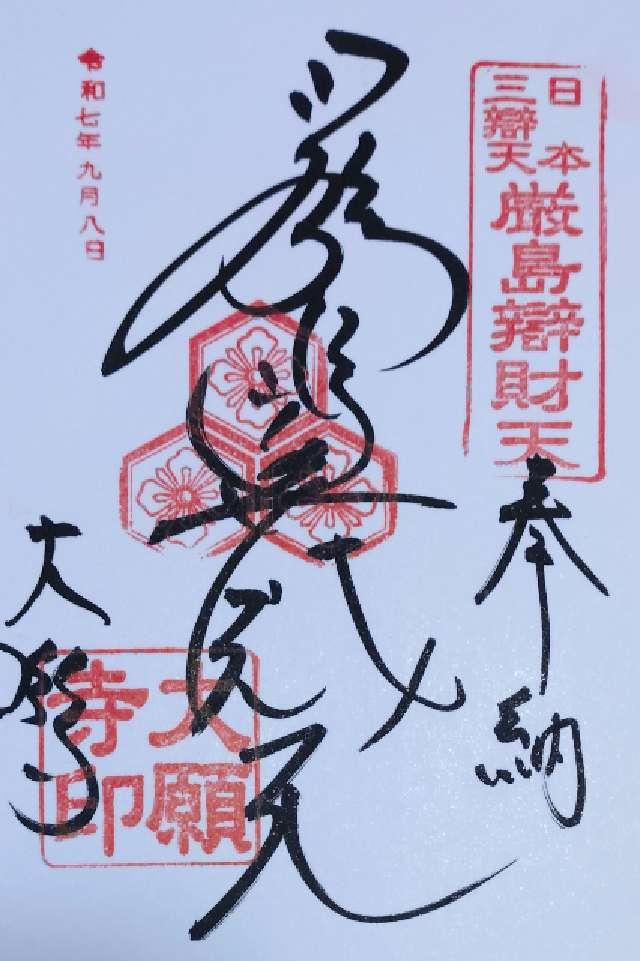 日本
三辯天
厳島辯財天
奉納
厳島
辨戝天
大願寺
大願
寺印
令和七年九月八日